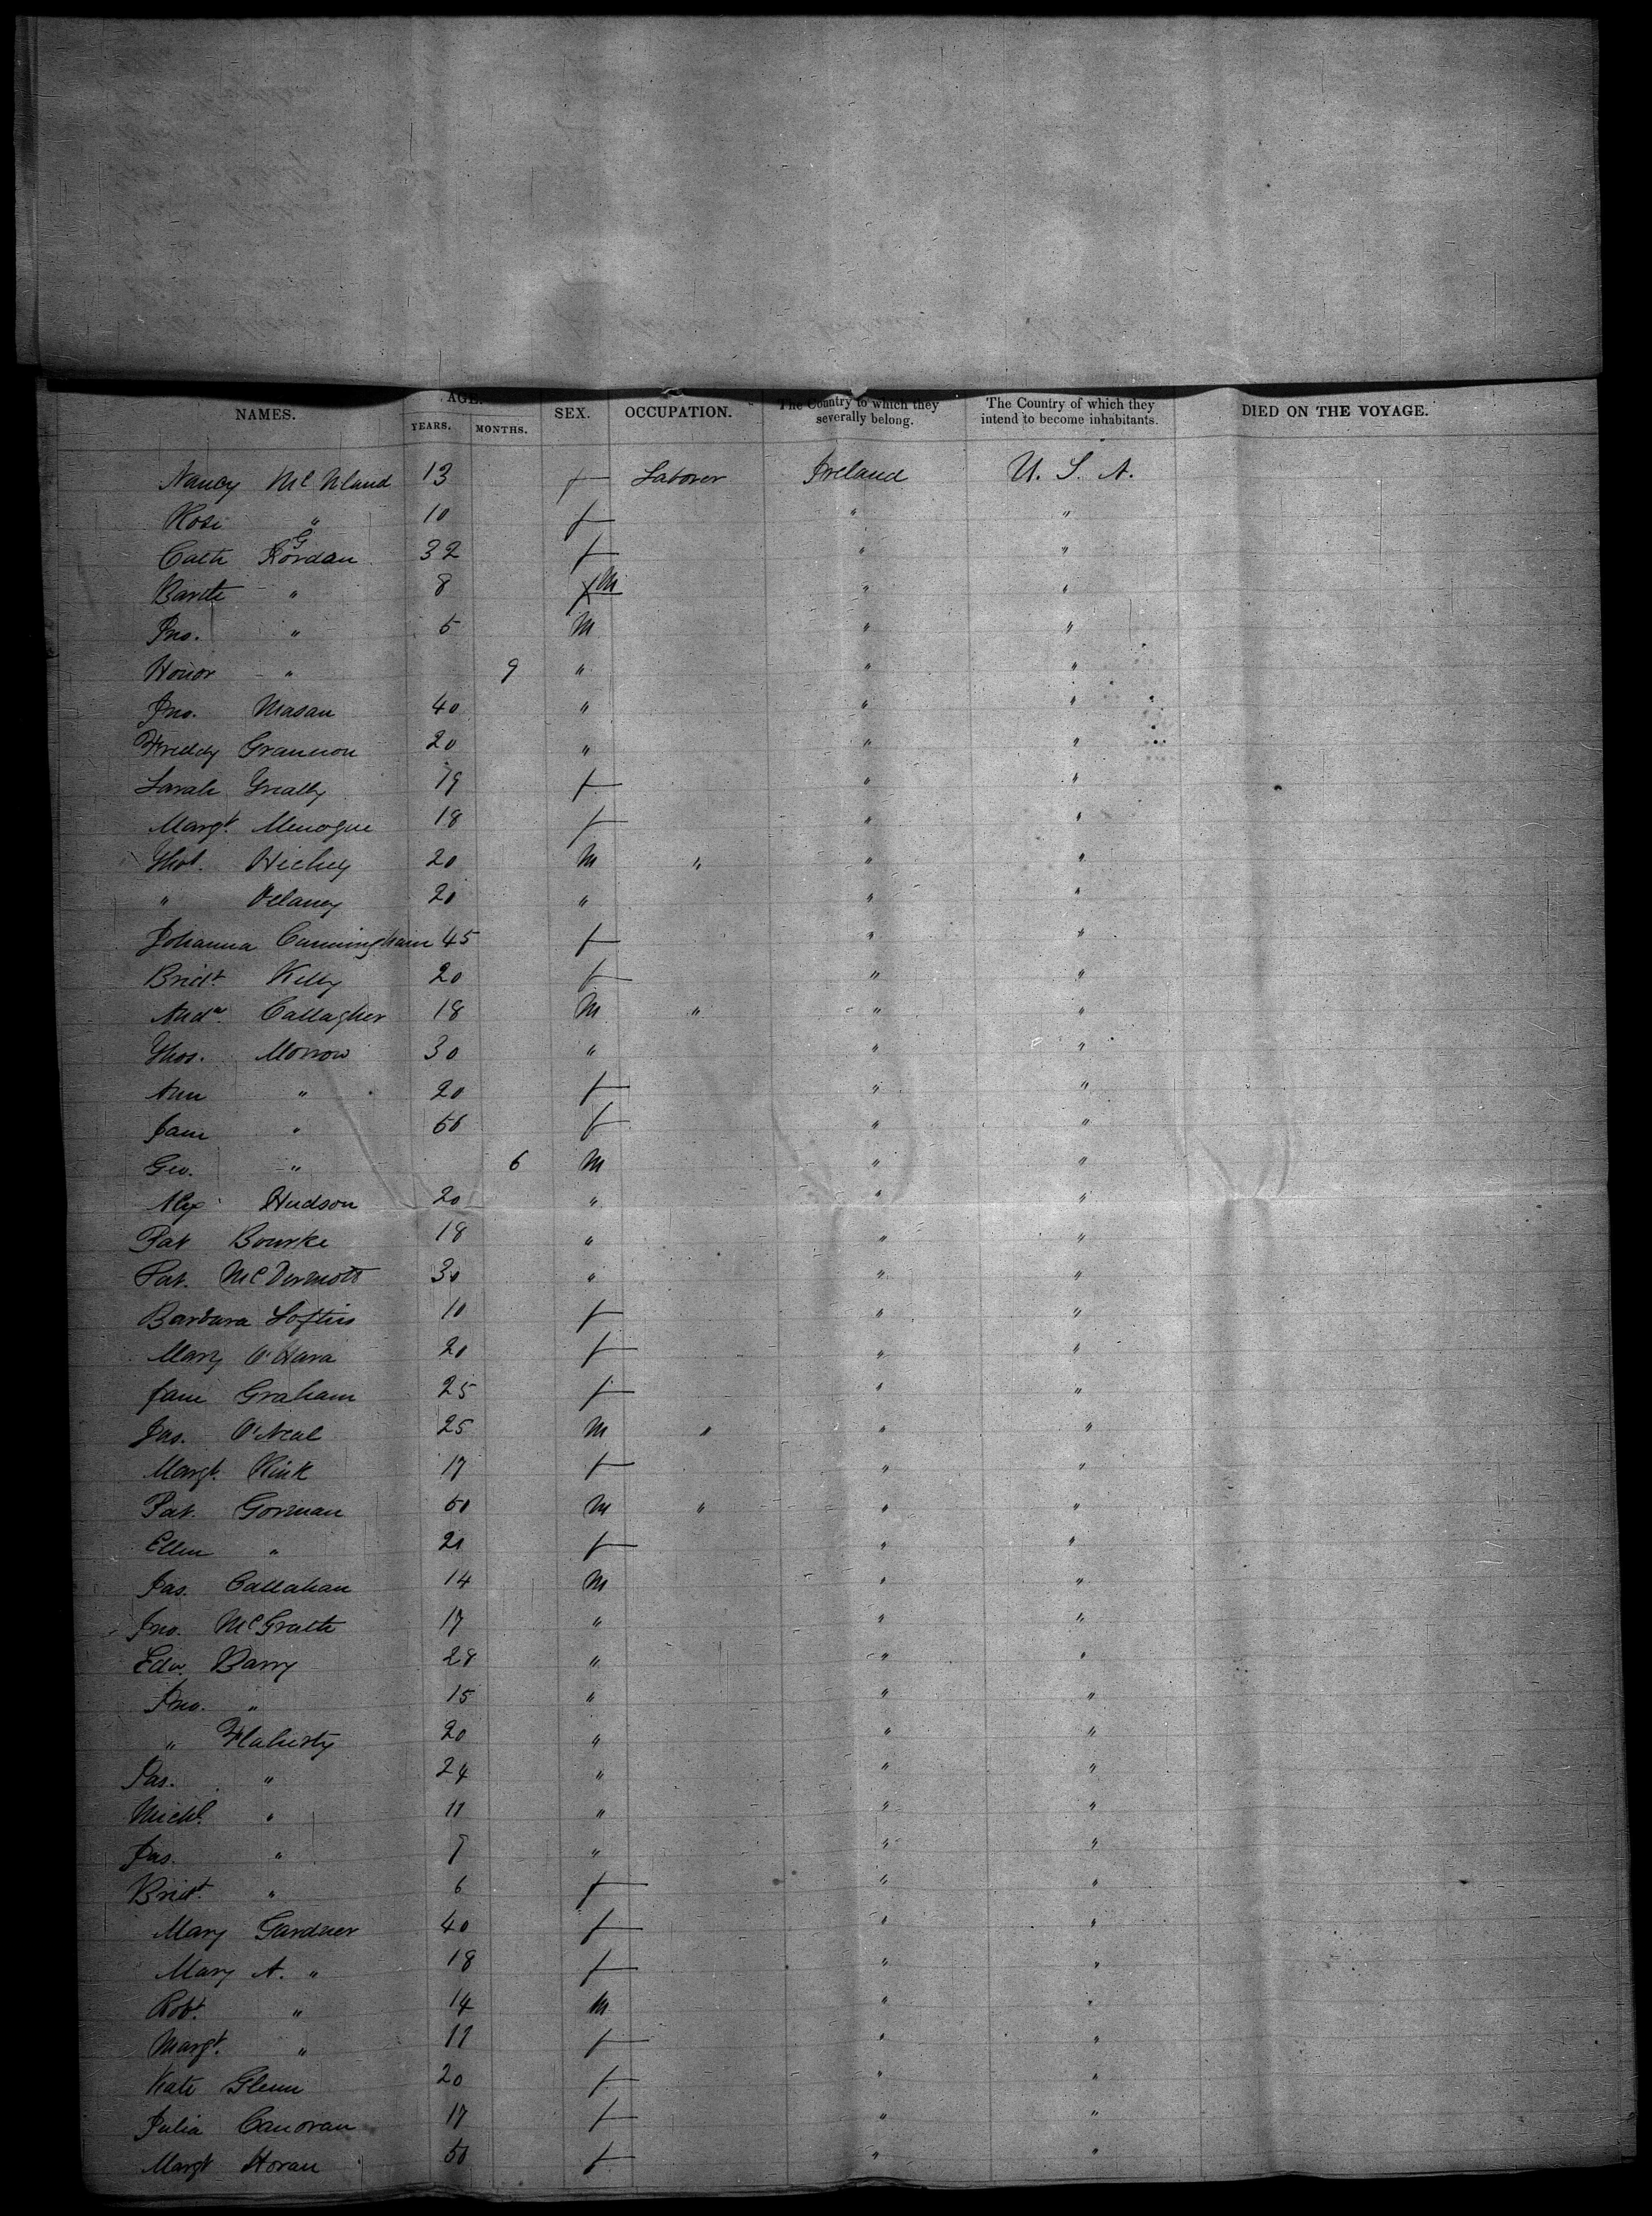 NAMES. AGE. YEARS. MONTHS. SEX. OCCUPATION. The Country to which they severally belong. The Country of which they intend to become inhabitants. DIED ON THE VOYAGE.
Nancy 13 f Laborer Ireland U. S. A.
Rose " 10 f " "
Cath Gordan 32 f " "
" 8 M " "
Jno. " 5 M " "
Honor " 9 " " "
Jno. Masan 40 " " "
Freddy Grannon 20 " " "
Sarah Grealy 19 f " "
Margt. Menogue 18 f " "
Thos. Hickey 20 M " " "
" Delaney 20 " " "
Johanna Cunningham 45 f " "
Bridt. Kelly 20 f " "
Andw. Callagher 18 M " " "
Thos. Morrow 30 " " "
Ann " 20 f " "
Jane " f " "
Geo. " 6 M " "
Alex Hudson 20 " " "
Pat Bourke 18 " " "
Pat. McDermott 30 " " "
Barbara Loftus 10 f " "
Mary O'Hara 20 f " "
Jane Graham 25 f " "
Jas. O'Neal 25 M " " "
Margt. Kink 17 f " "
Pat. Gorman 50 M " " "
Ellen " f " "
Jas. Callahan 14 M " "
Jno. McGrath 17 " " "
Edw. Barry 28 " " "
Jno. " 15 " " "
" Flaherty 20 " " "
Jas. " 24 " " "
Michl. " 11 " " "
Jas. " " " "
Bridt. " 6 f " "
Mary Gardner 40 f " "
Mary A. " 18 f " "
Robt. " 14 M " "
Margt. " 11 f " "
Kate Glenn 20 f " "
Julia Canovan 17 f " "
Margt Horan 50 f " "